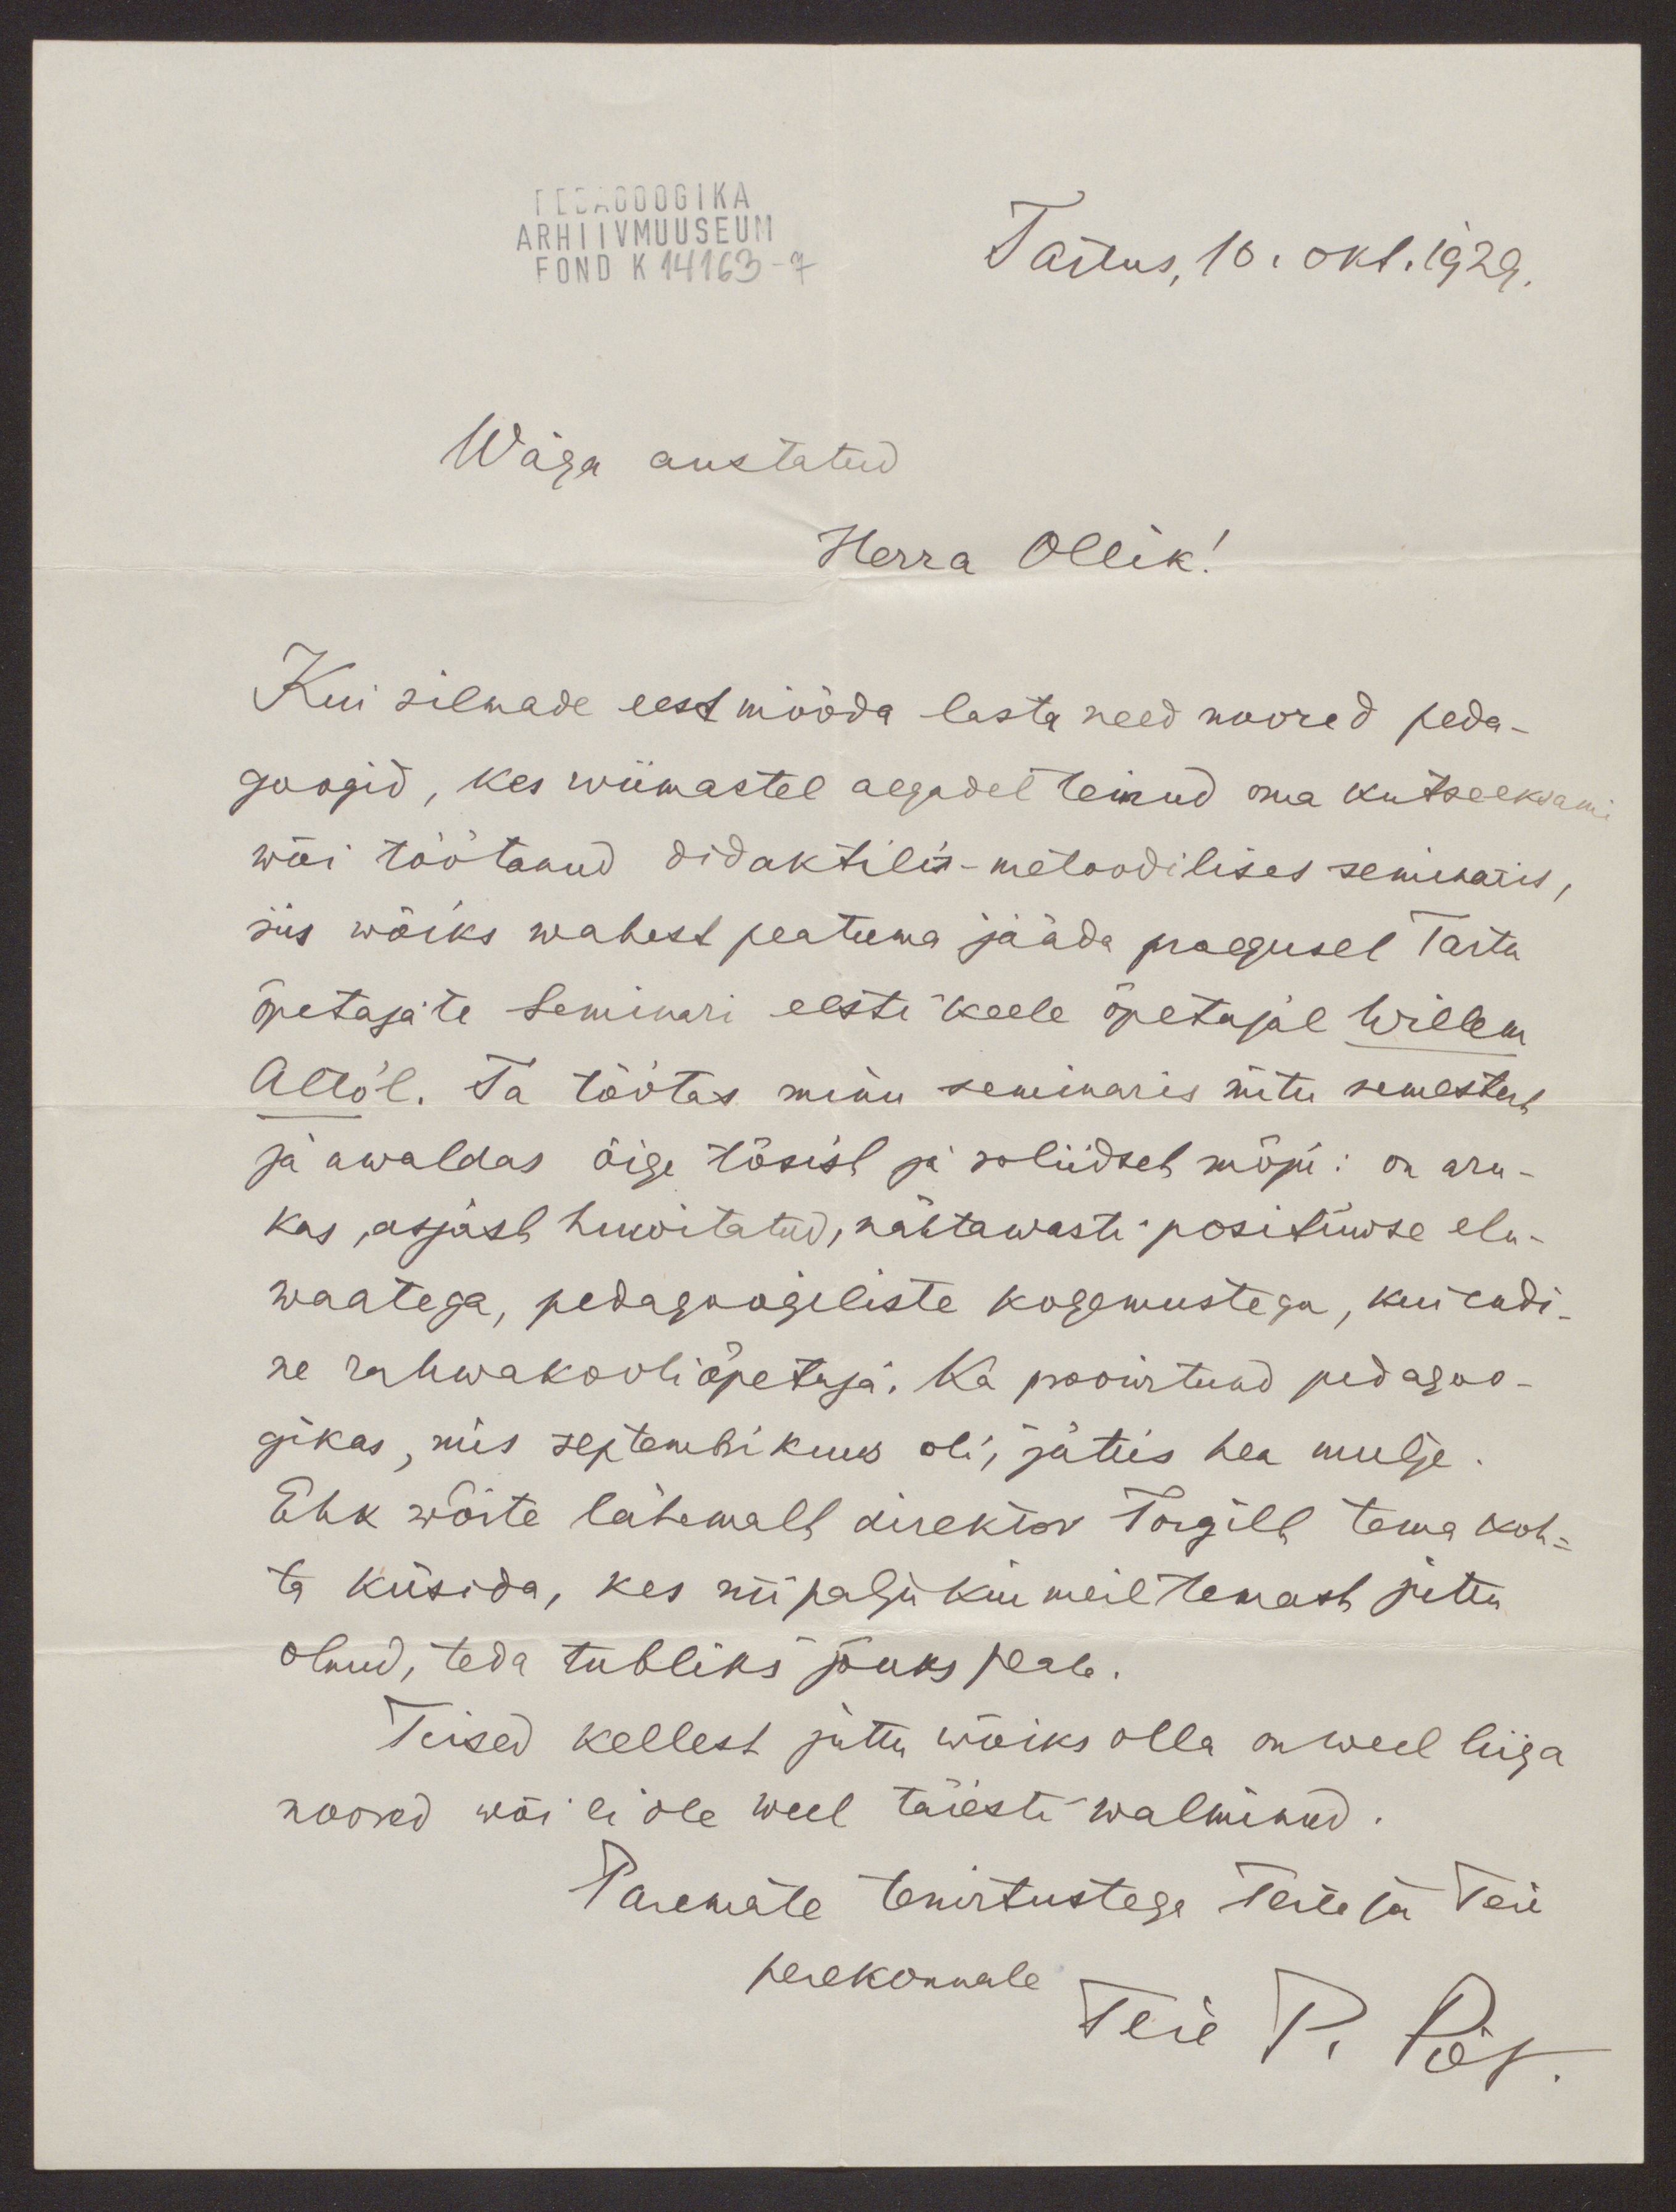 PEDAGOOGIKA
ARHIIVMUUSEUM
FOND K 14163-7
Tartus, 10. okt. 1929.
Wäga austatud
Herra Ollik!
Kui silmade eest mööda lasta need noored peda-
googid, kes wiimastel aegadel teinud oma kutseeksami
wõi töötanud didaktilis-metoodilises seminaris,
siis wõiks wahest peatuma jääda praegusel Tartu
õpetajate Seminari eesti keele õpetajal Willem
Alto'l. Ta töötas minu seminaris mitu semestert
ja awaldas õige tõsist ja soliidset mõju: on aru-
kas, asjast huwitatud, nähtawasti positiiwse elu-
waatega, pedagoogiliste kogemustega, kui endi-
ne rahwakooliõpetaja. Ka proowitund pedagoo-
gikas, mis septembrikuus oli, jättis hea mulje.
Ehk wõite lähemalt direktor Torgilt tema koh=
ta küsida, kes niipalju kui meil temast juttu
olnud, teda tubliks jõuks peab.
Teised kellest juttu wõiks olla on weel liiga
noored wõi ei ole weel täiesti walminud.
Paremate terwitustega Teile ja Teie
perekonnale
Teie P. Põld.